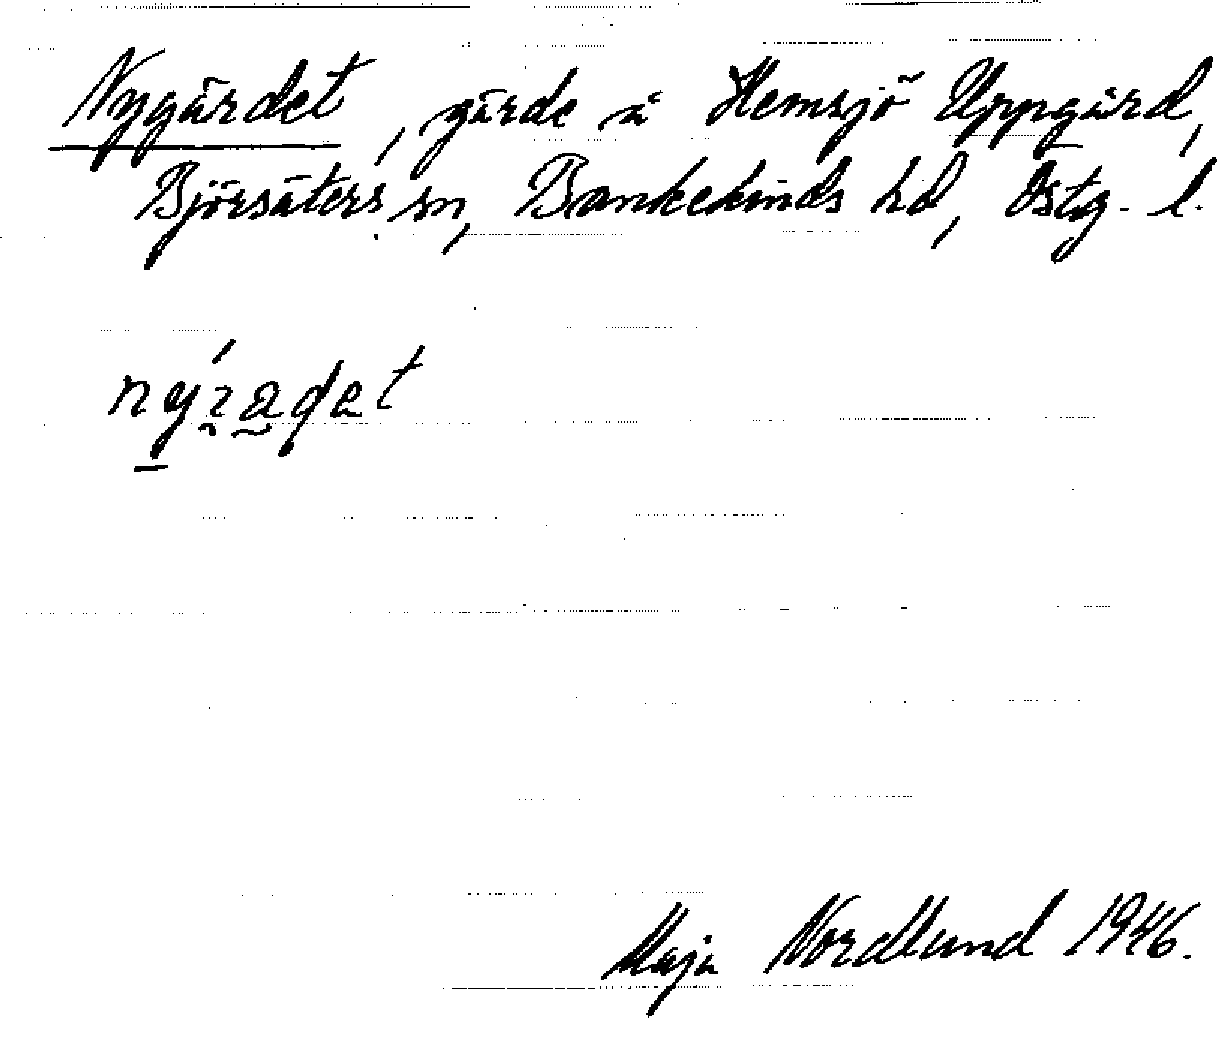 Nygärdet, gärde å Hemsjö Uppgård,
Björsäters sn, Bankekinds hd, Östg. l.
Maja Nordlund 1946.